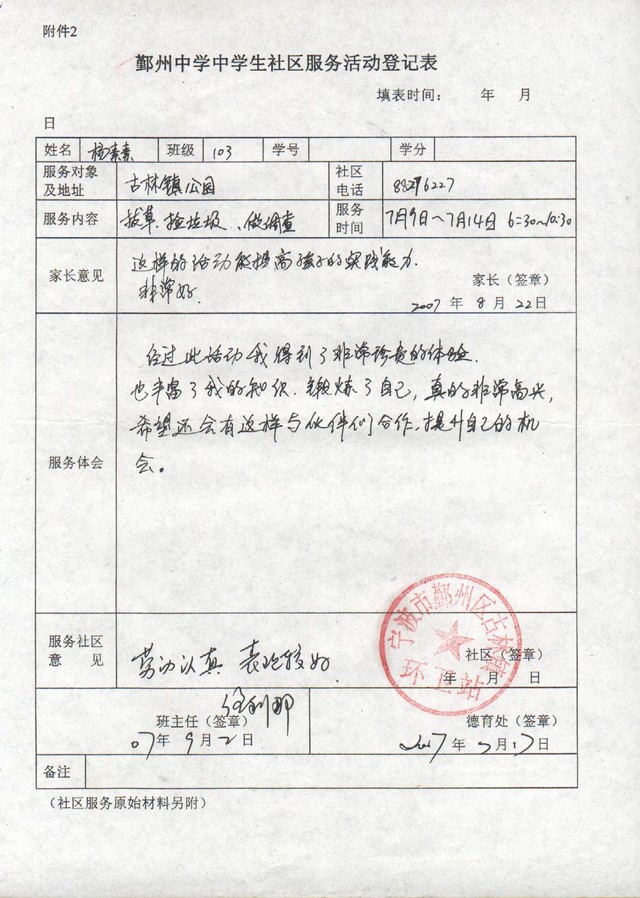 附件2
鄞州中学中学生社区服务活动登记表
填表时间： 年 月
日
姓名 杨素素 班级 103 学号 学分
服务对象及地址 古林镇公园 社区电话 88296227
服务内容 拔草、捡垃圾、做调查 服务时间 7月9日～7月14日 6:30～10:30
家长意见 这样的活动能提高孩子的实践能力.
非常好.
家长（签章）
2007年8月22日
经过此活动我得到了非常珍贵的体验.
也丰富了我的知识.锻炼了自己，真的非常高兴，
希望还会有这样与伙伴们合作,提升自己的机
会。
服务体会
服务社区意见 劳动认真 表现较好
社区（签章）
年 月 日
宁波市鄞州区古林镇
环卫站
班主任（签章）
07年9月2日
德育处（签章）
2007年 月17日
备注
（社区服务原始材料另附）